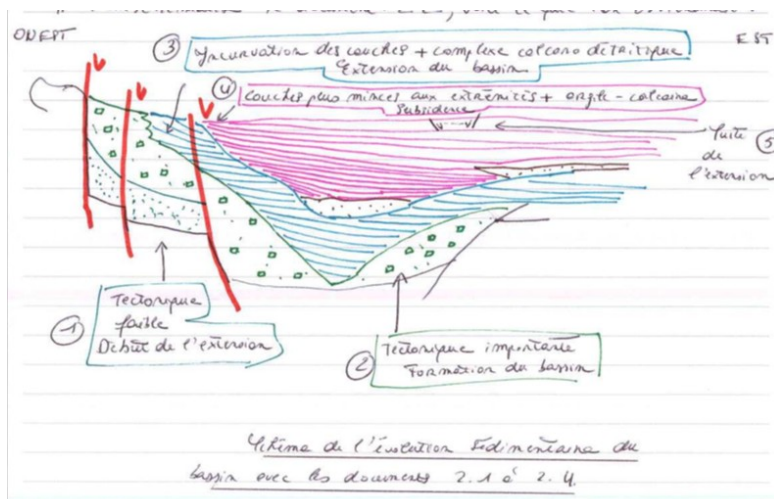 OUEST
EST
③ Incurvation des couches + complexe calcaro détritique
Extension du bassin
④ Couches plus minces aux extrémités + argile-calcaire
Subsidence
Suite ⑤
de
l'extension
① Tectonique
faible
Début de l'extension
② Tectonique importante
Formation du bassin
Schéma de l'évolution sédimentaire du
bassin avec les documents 2.1 à 2.4.